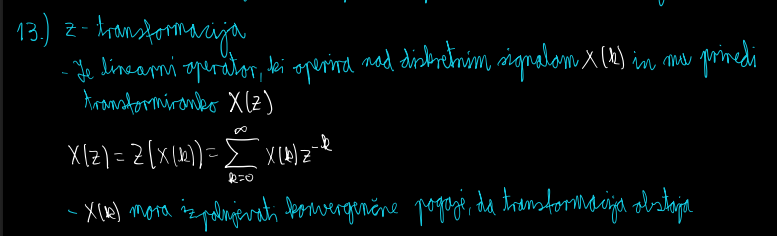 13.) z-transformacija
- Je linearni operator, ki operira nad diskretnim signalom X(k) in mu priredi
transformiranko X(z)
X(z) = Z(X(k)) = ∞∑k=0 X(k) z^-k
- X(k) mora izpolnjevati konvergenčne pogoje, da transformacija obstaja